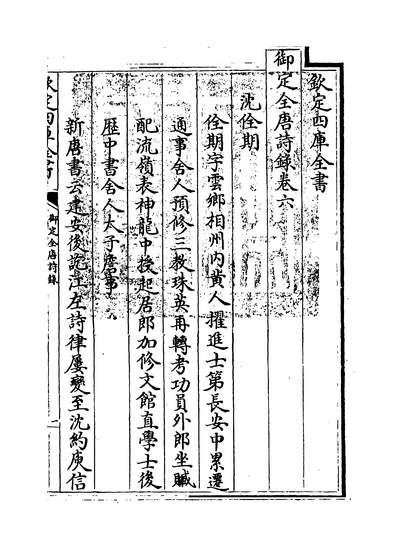 欽定四庫全書
御定全唐詩錄卷六
沈佺期
佺期字雲卿相州内黄人擢進士第長安中累遷
通事舍人預修三教珠英再轉考功員外郎坐贓
配流嶺表神龍中授起居郎加修文館直學士後
歴中書舍人太子詹事
新唐書云建安後訖江左詩律屢變至沈約庾信
欽定四庫全書
御定全唐詩錄
一